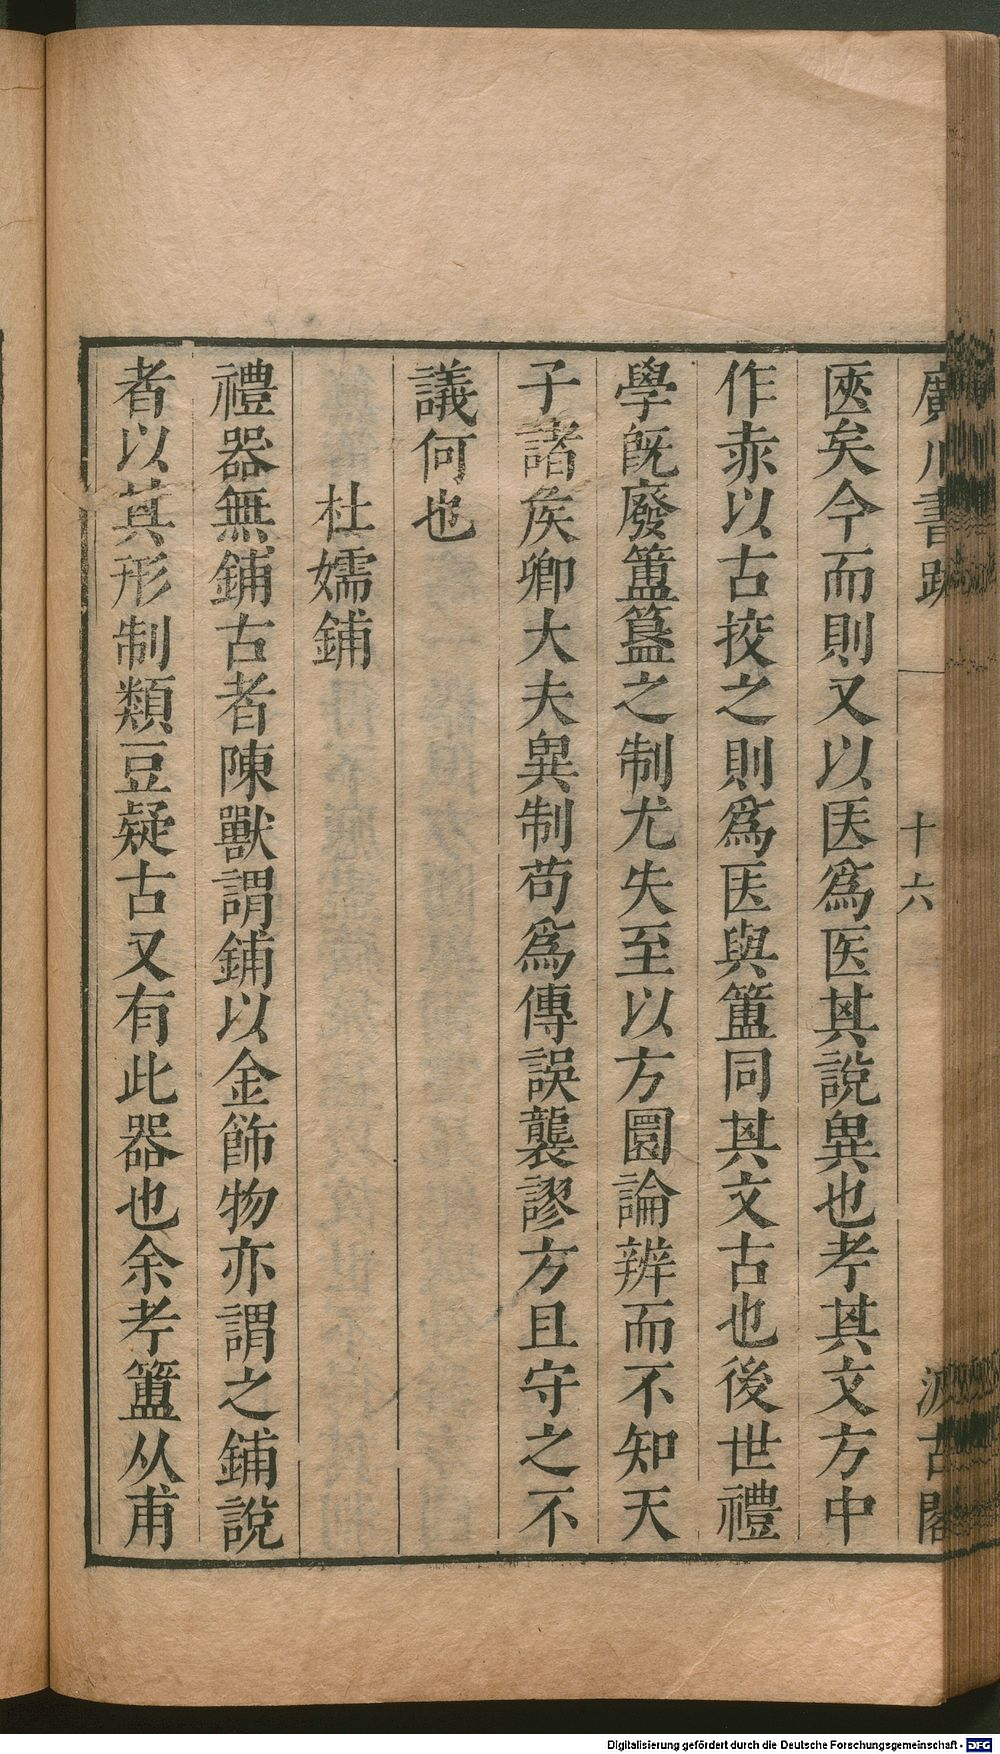 廣川書跋 十六 汲古閣
医矣今而則又以医爲医其說異也考其文方中
作赤以古挍之則爲医與簠同其文古也後世禮
學旣廢簠簋之制尤失至以方圜論辨而不知天
子諸矦卿大夫異制苟爲傳誤襲謬方且守之不
議何也
杜嬬鋪
禮器無鋪古者陳獸謂鋪以金飾物亦謂之鋪說
者以其形制類豆疑古又有此器也余考簠从甫
Digitalisierung gefördert durch die Deutsche Forschungsgemeinschaft - DFG